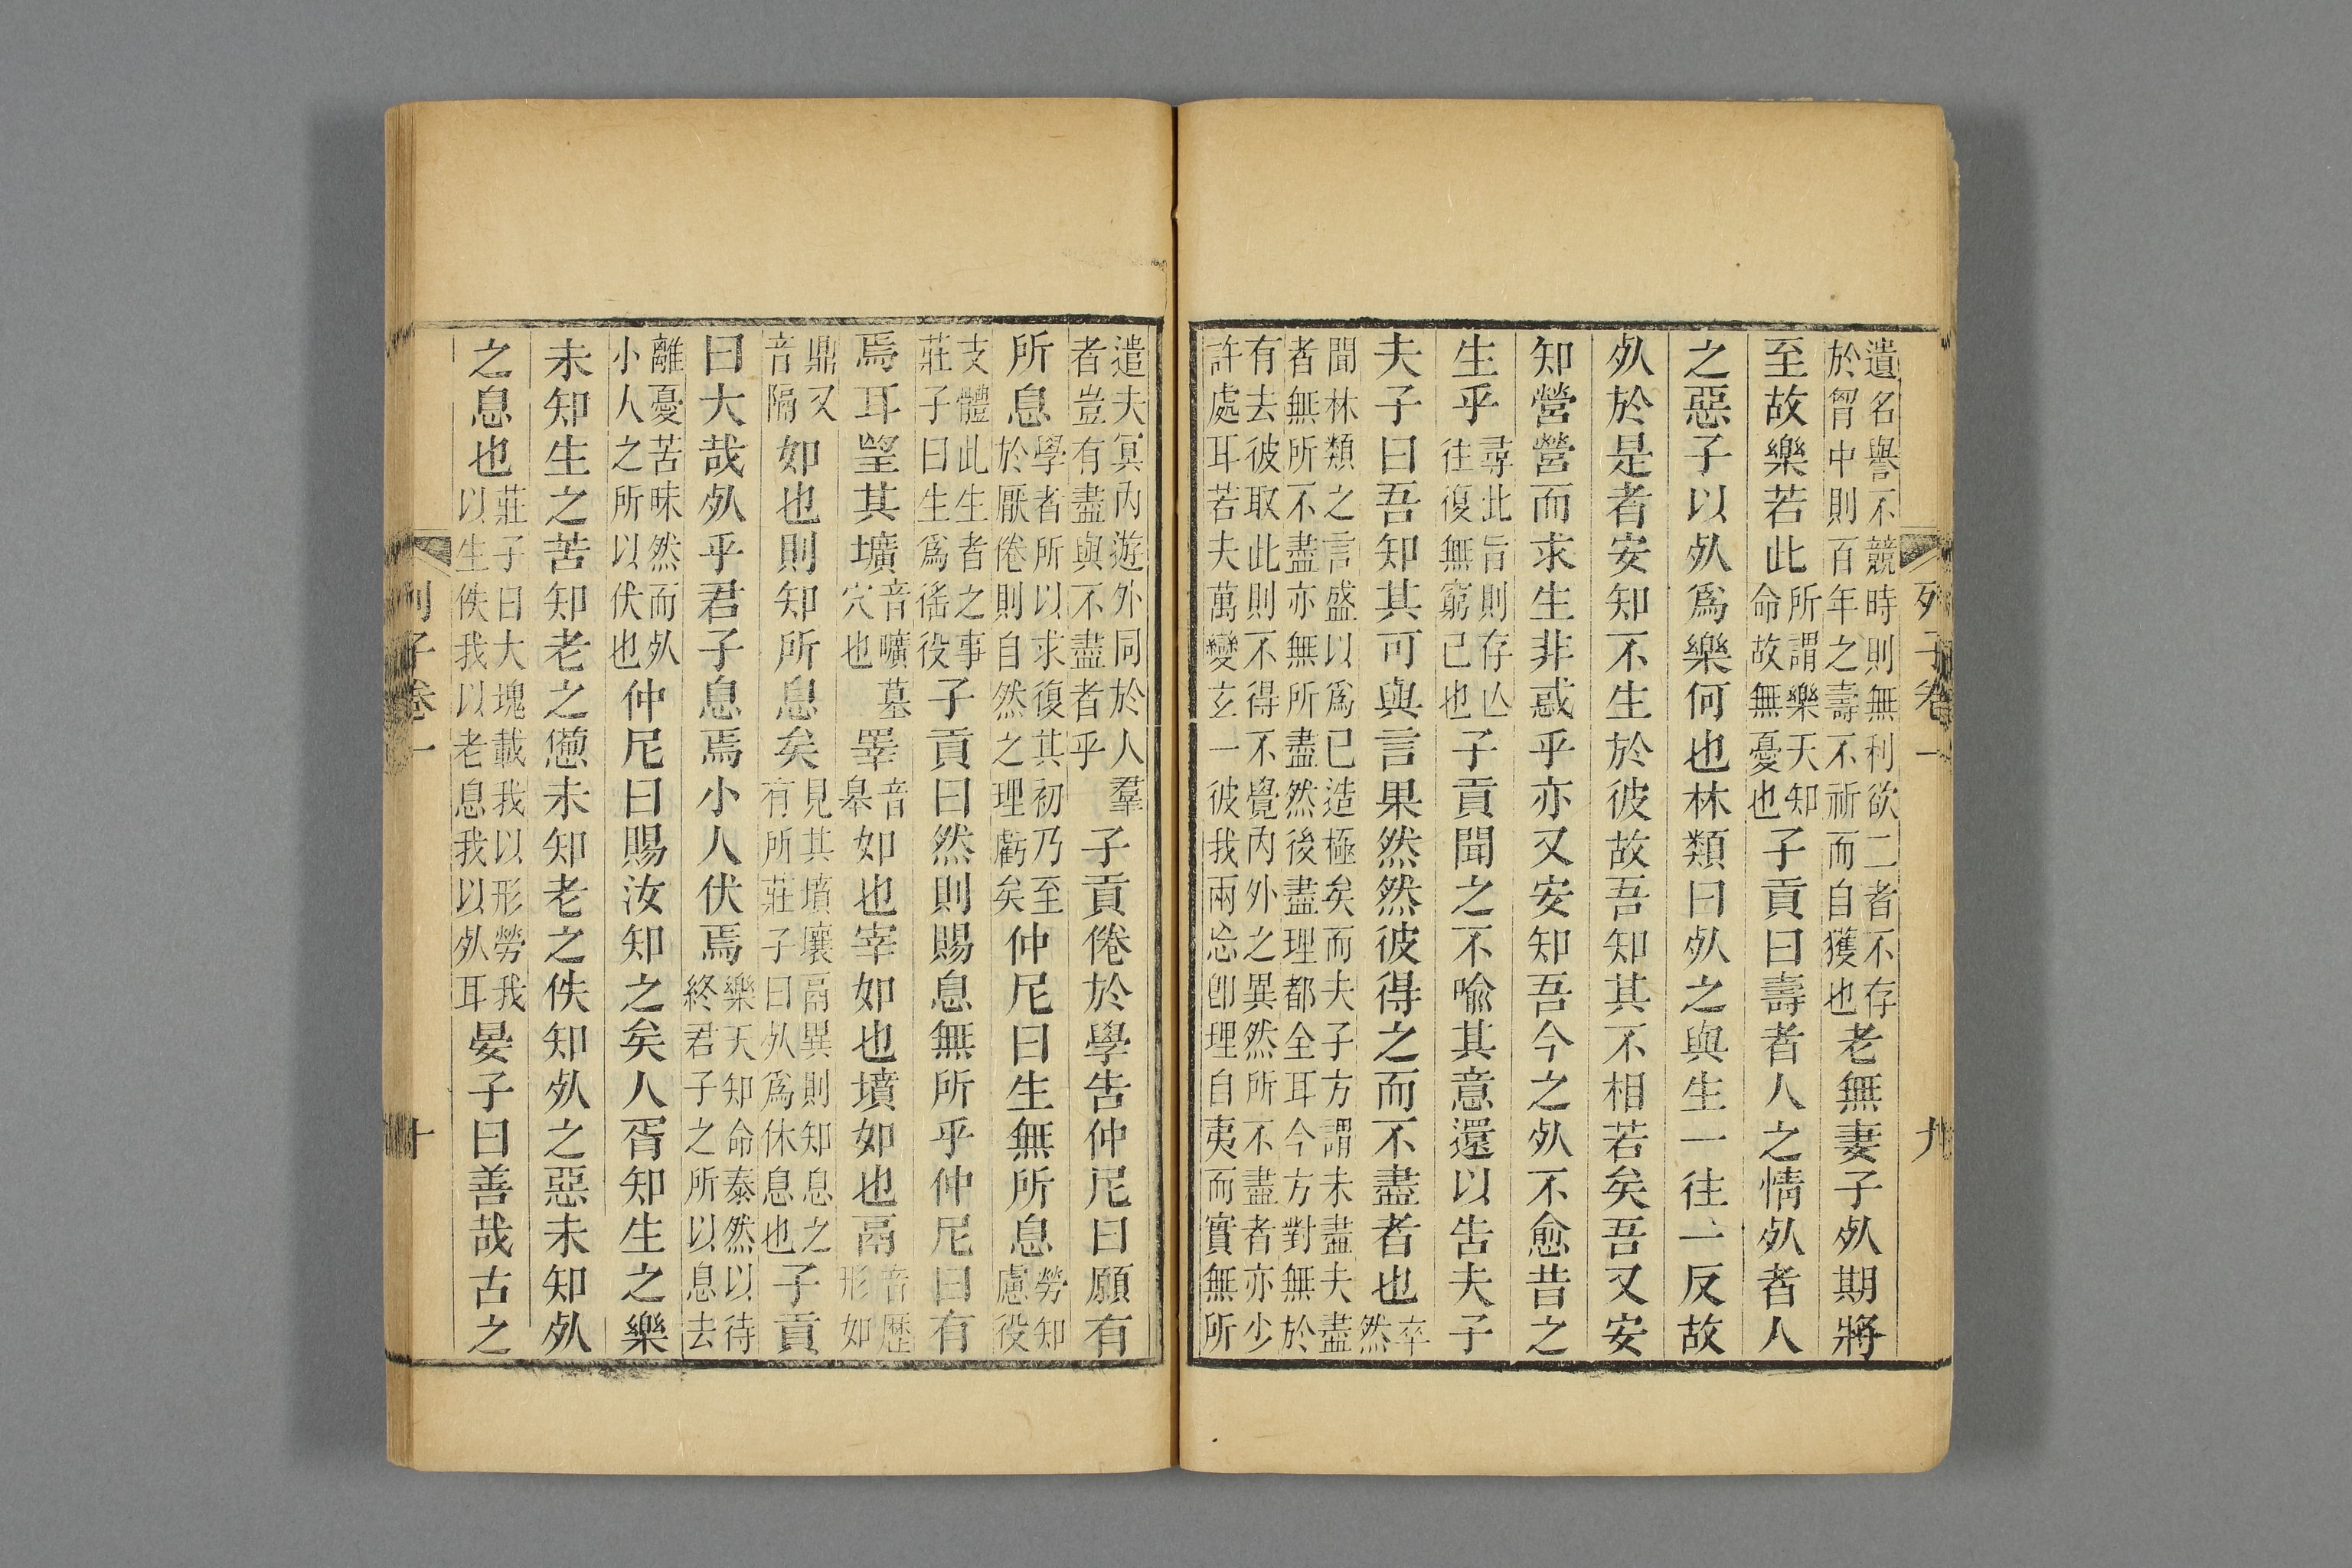 列子卷一　九
遺名譽不競時則無利欲二者不存於胷中則百年之壽不祈而自獲也老無妻子死期將
至故樂若此所謂樂天知命故無憂也子貢曰壽者人之情死者人
之惡子以死爲樂何也林類曰死之與生一往一反故
死於是者安知不生於彼故吾知其不相若矣吾又安
知營營而求生非惑乎亦又安知吾今之死不愈昔之
生乎尋此旨則存亾往復無窮已也子貢聞之不喻其意還以告夫子
夫子曰吾知其可與言果然然彼得之而不盡者也卒然
聞林類之言盛以爲已造極矣而夫子方謂未盡夫盡
者無所不盡亦無所盡然後盡理都全耳今方對無於
有去彼取此則不得不覺內外之異然所不盡者亦少
許處耳若夫萬變玄一彼我兩忘卽理自夷而實無所
遣夫冥內遊外同於人羣者豈有盡與不盡者乎子貢倦於學告仲尼曰願有
所息學者所以求復其初乃至於厭倦則自然之理虧矣仲尼曰生無所息勞知慮役
支體此生者之事莊子曰生爲徭役子貢曰然則賜息無所乎仲尼曰有
焉耳望其壙音曠墓穴也睪音皋如也宰如也墳如也鬲音歷形如
鼎又音隔如也則知所息矣見其墳壤鬲異則知息之有所莊子曰死爲休息也子貢
曰大哉死乎君子息焉小人伏焉樂天知命泰然以待終君子之所以息去
離憂苦昧然而死小人之所以伏也仲尼曰賜汝知之矣人胥知生之樂
未知生之苦知老之憊未知老之佚知死之惡未知死
之息也莊子曰大塊載我以形勞我以生佚我以老息我以死耳晏子曰善哉古之
列子卷一　十